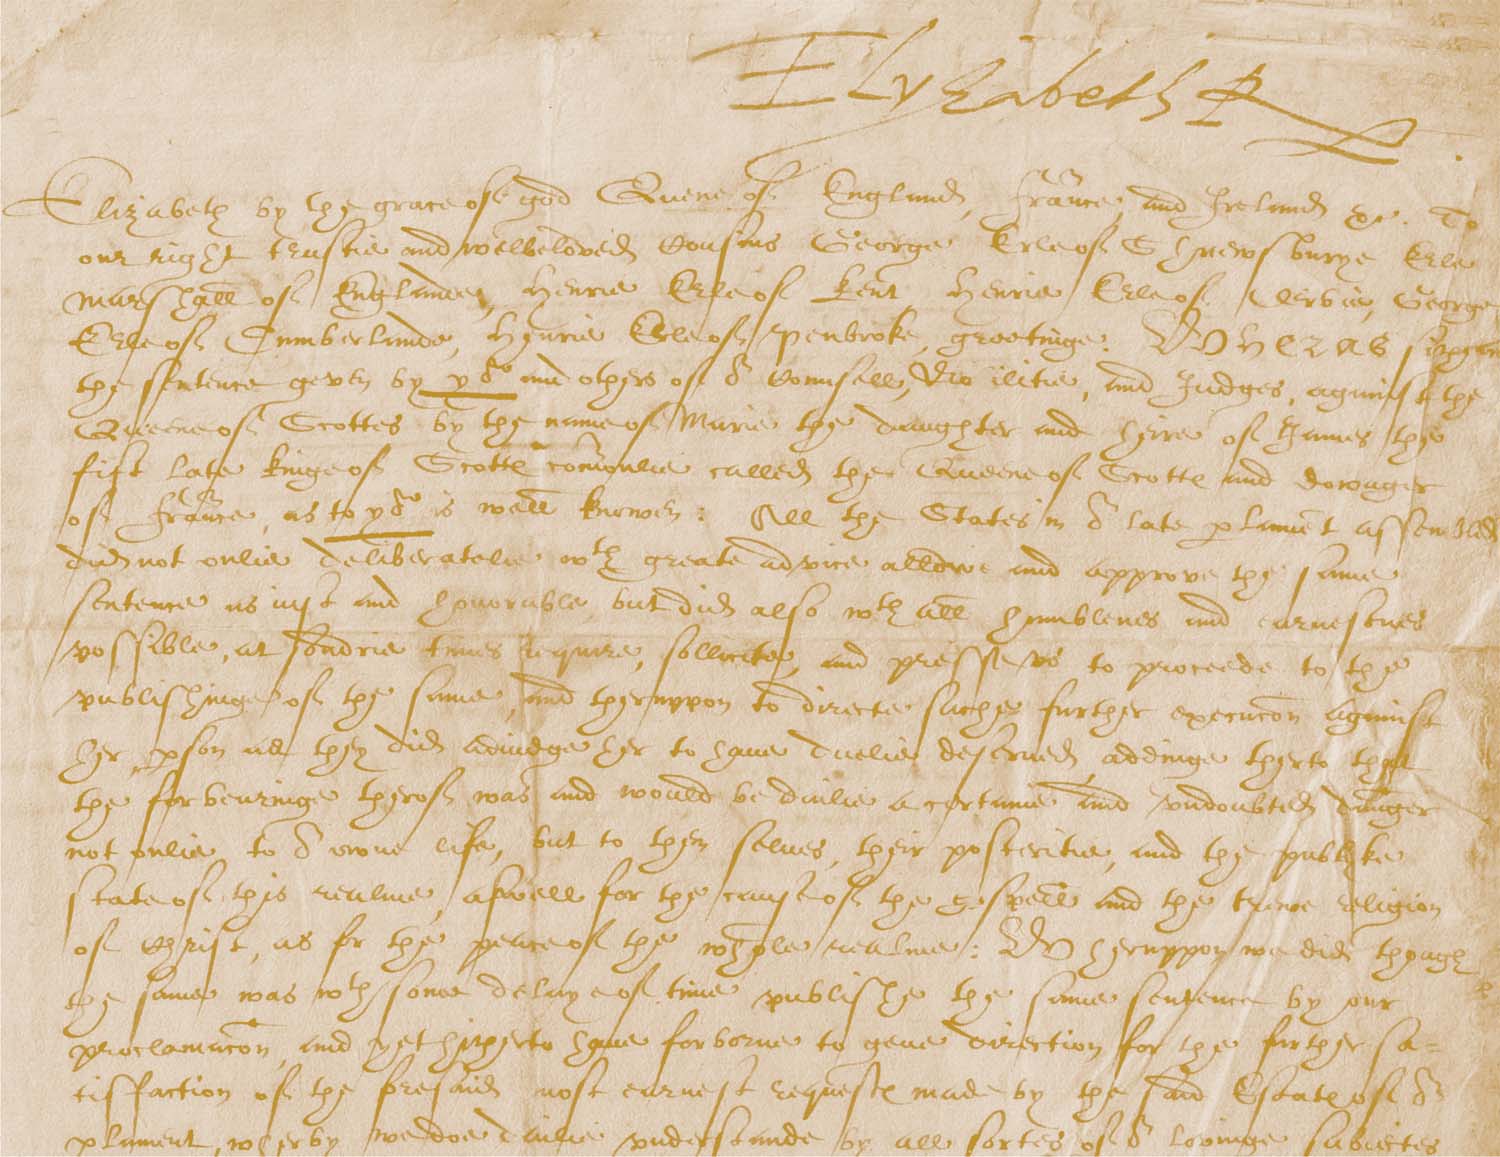 Elyzabeth R
Elizabeth by the grace of god Quene of England, frãnce, and Ireland &c. To
our right trustie and welbeloved Cousins George Erle of Shrewsburye Erle
marshall of Englande, Henrie Erle of Kent, Henrie Erle of Derbie, George
Erle of Cumberlande, Henrie Erle of Penbroke, greetinge: Wheras
the sentence geven by yoᵘ and others of oʳ Counsell, Nobilitie, and Judges, against the
Queene of Scottes by the name of Marie the daughter and heire of James the
fift late kinge of Scottℯ comõnlie called the Queene of Scottℯ and dowager
of frãnce, as to yoᵘ is well knowen: All the States in oʳ late ꝑlamẽt assembled
did not onlie deliberatelie wᵗʰ greate advice allowe and approve the same
sentence as iust and honorable, but did also wᵗʰ all humblenes and earnestnes
possible, at sondrie times require, sollicite, and presse us to proceede to the
publishinge of the same, and therupon to directe suche further execucõn against
her ꝑson as they did adiudge her to have duelie deserved, addinge therto that
the forbearinge therof was and would be dailie a certaine and undoubted daũger
not onlie to oʳ owne life, but to them selves, their posteritie, and the publike
state of this realme, aswell for the cause of the gospell and the trewe religion
of Christ, as for the peace of the whole realme: Wheruppon we did though
the same was wᵗʰ some delaye of time publishe the same sentence by our
proclamacõn, and yet hitherto have forborne to geve direction for the further sa=
tisfaction of the foresaid most earnest requestℯ made by the said Estatℯ of oʳ
ꝑlament, wherby we doe dailie understande by all sortes of oʳ lovinge subiectes